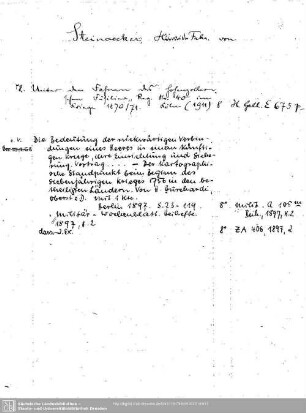 Steinaecker, Heinrich Frhr. von
Unter den Fahnen des Hohenzollern
Füsilier Reg. No 40 im
Kriege 1870/71. Köln (1911) 8 H. Gall. E 675
s. v. Die Bedeutung der rückwärtigen Verbin-
dungen eines Heeres in einem künfti-
gen Kriege, ihre Einrichtung und Siche-
rung. Vortrag ... – Der kartographi-
sche Standpunkt beim Beginn des
Siebenjährigen Krieges 1756 in den be-
theiligten Ländern. Von
Oberst z. D. Mit 1 Kte.
Berlin 1897. S. 23-119. 8° Milit. A
Militär-Wochenblatt. Beihefte 1897, H. 2
1897, H. 2
dass. 2. Ex. 8° ZA 406, 1897, 2